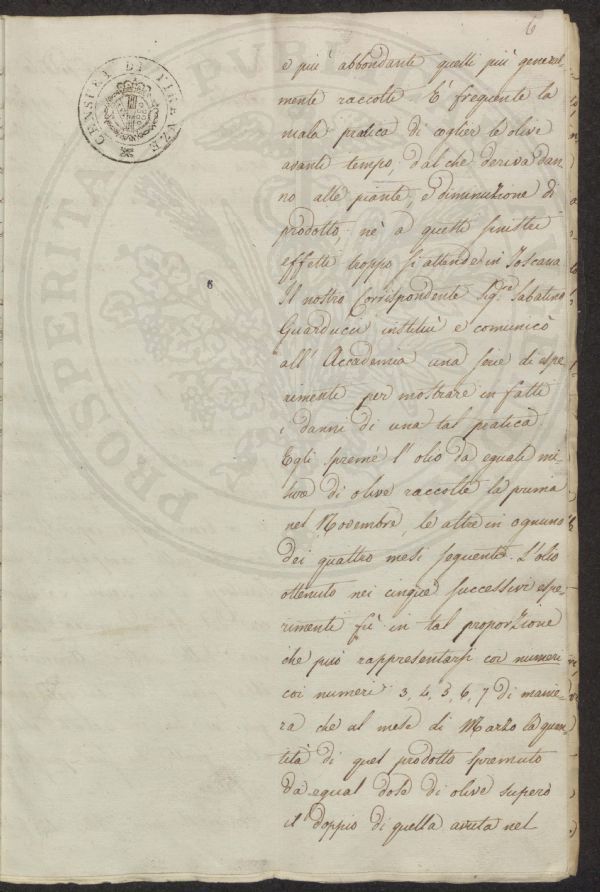 6
GEORGOFILI DI FIRENZE
PROSPERITÀ PUBBLICA
e più abbondante quelli più general-
mente raccolti. È frequente la
mala pratica di coglier le olive
avanti tempo, dal che deriva dan-
no alle piante, e diminuzione di
prodotto, nè a questi sinistri
effetti troppo si attende in Toscana.
Il nostro Corrispondente Sigre. Sabatino
Guarducci instituì e comunicò
all'Accademia una serie di espe-
rimenti per mostrare in fatti
i danni di una tal pratica.
Egli spremè l'olio da eguali mi-
sure di olive raccolte la prima
nel Novembre, le altre in ognuno
dei quattro mesi seguenti. L'olio
ottenuto nei cinque successivi espe-
rimenti fù in tal proporzione
che può rappresentarsi coi numeri
coi numeri 3, 4, 5, 6, 7 di manie-
ra che al mese di Marzo la quan-
tità di quel prodotto spremuto
da egual dose di olive superò
il doppio di quella avuta nel